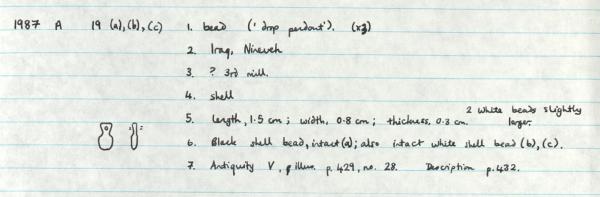 1987 A 19 (a),(b),(c) 1. bead ('drop pendant'). (x3)
2. Iraq, Nineveh
3. ? 3rd mill.
4. shell
2 white beads slightly larger.
5. length, 1.5 cm; width, 0.8 cm; thickness, 0.3 cm.
6. Black shell bead, intact (a); also intact white shell bead (b), (c).
7. Antiquity V, illus. p. 429, no. 28. Description p. 432.